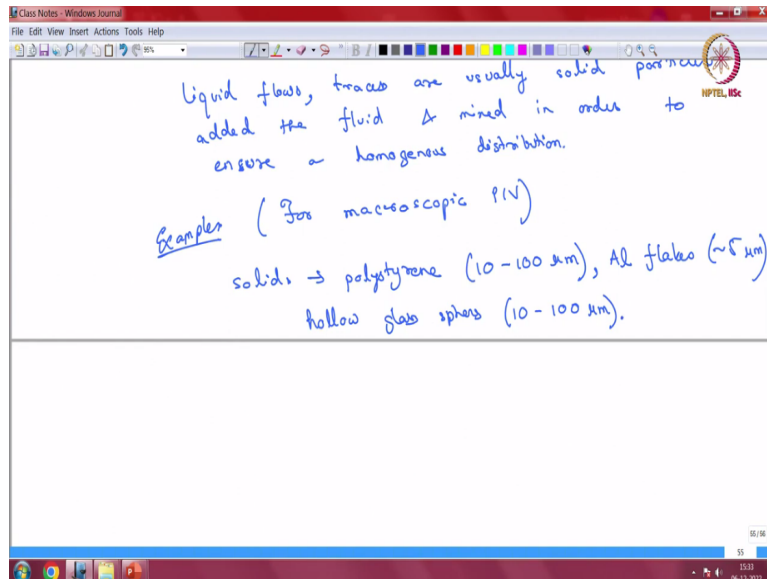 Class Notes - Windows Journal
File Edit View Insert Actions Tools Help
95%
NPTEL, IISc
liquid flows, traces are usually solid
added the fluid & mixed in order to
ensure a homogenous distribution.
Examples (For macroscopic PIV)
solids → polystyrene (10-100 μm), Al flakes (~5 μm)
hollow glass sphers (10-100 μm).
55/56
55
15:33
06-12-2022